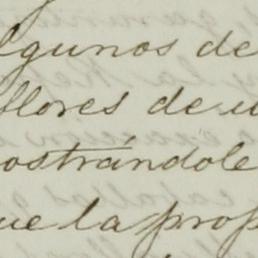 lgunos de
flores de u
ostrándole
ue la prop